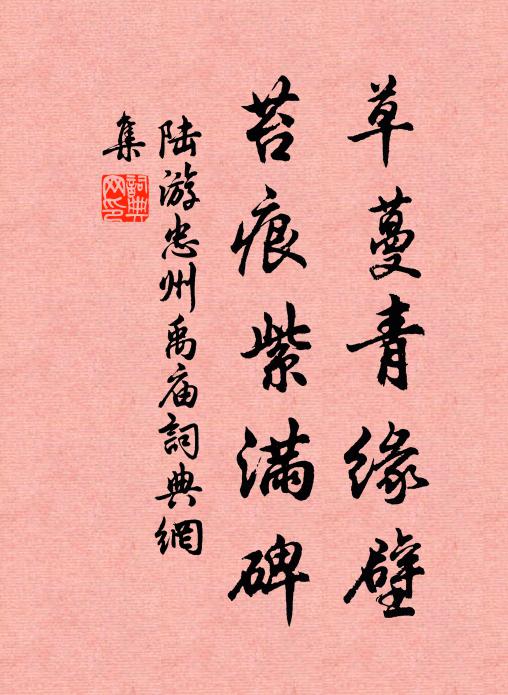 草蔓青缘壁
苔痕紫满碑
陆游忠州禹庙詞典網
集
詞典网印